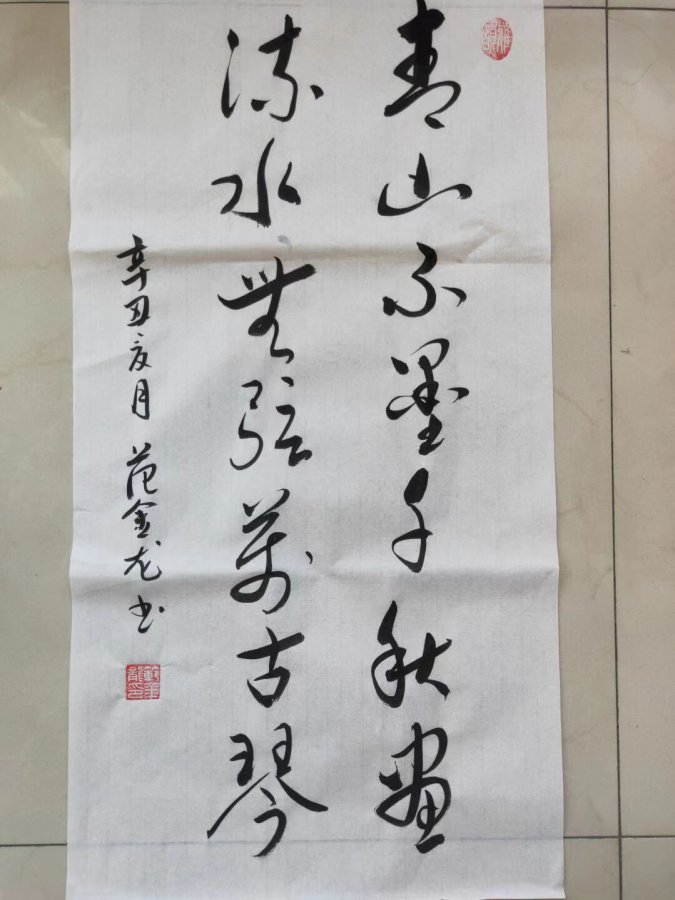 青山不墨千秋畫
流水無弦萬古琴
辛丑夏月 范金龙书